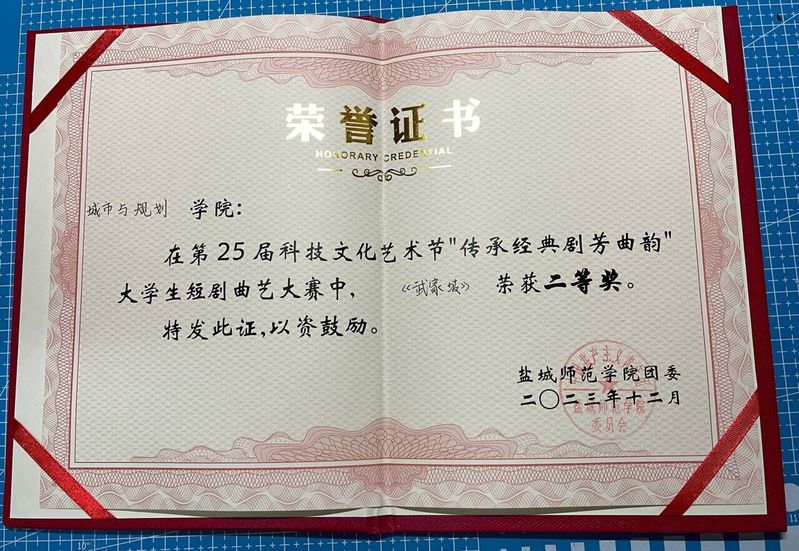 荣誉证书
HONORARY CREDENTIAL
城市与规划 学院:
在第25届科技文化艺术节"传承经典剧芳曲韵"
大学生短剧曲艺大赛中, 《武家坡》 荣获二等奖。
特发此证,以资鼓励。
盐城师范学院团委
二〇二三年十二月
盐城师范学院
委员会